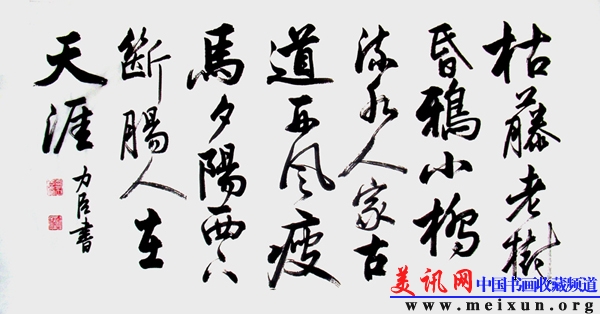 枯藤老樹
昏鴉小橋
流水人家古
道西风瘦
馬夕陽西下
斷腸人在
天涯
力臣書
美讯网 中国书画收藏频道
www.meixun.org